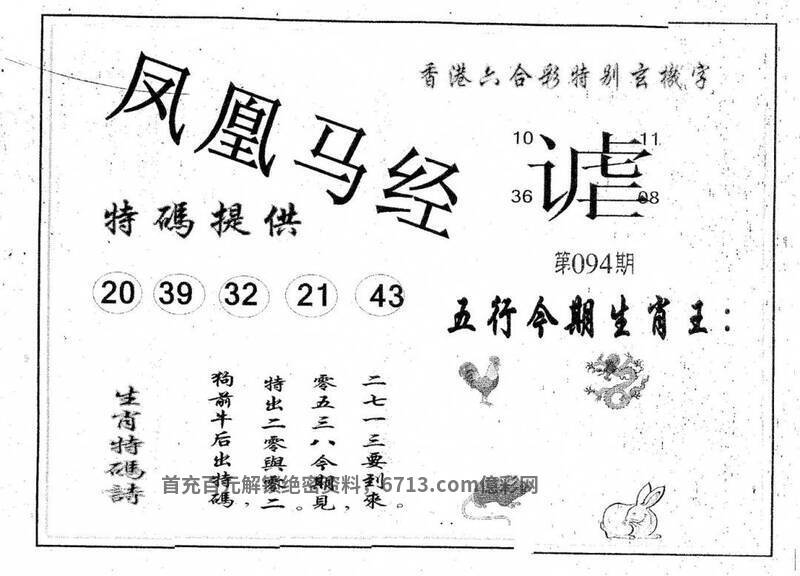 凤凰马经
香港六合彩特别玄機字
10 11
谑
36 08
第094期
特碼提供
20 39 32 21 43
五行今期生肖王：
生肖特碼詩
二七一三要到來。
零五三八今期見，
特出二零與零二。
狗前牛后出特碼，
首充百元解锁绝密资料：6713.com億彩网